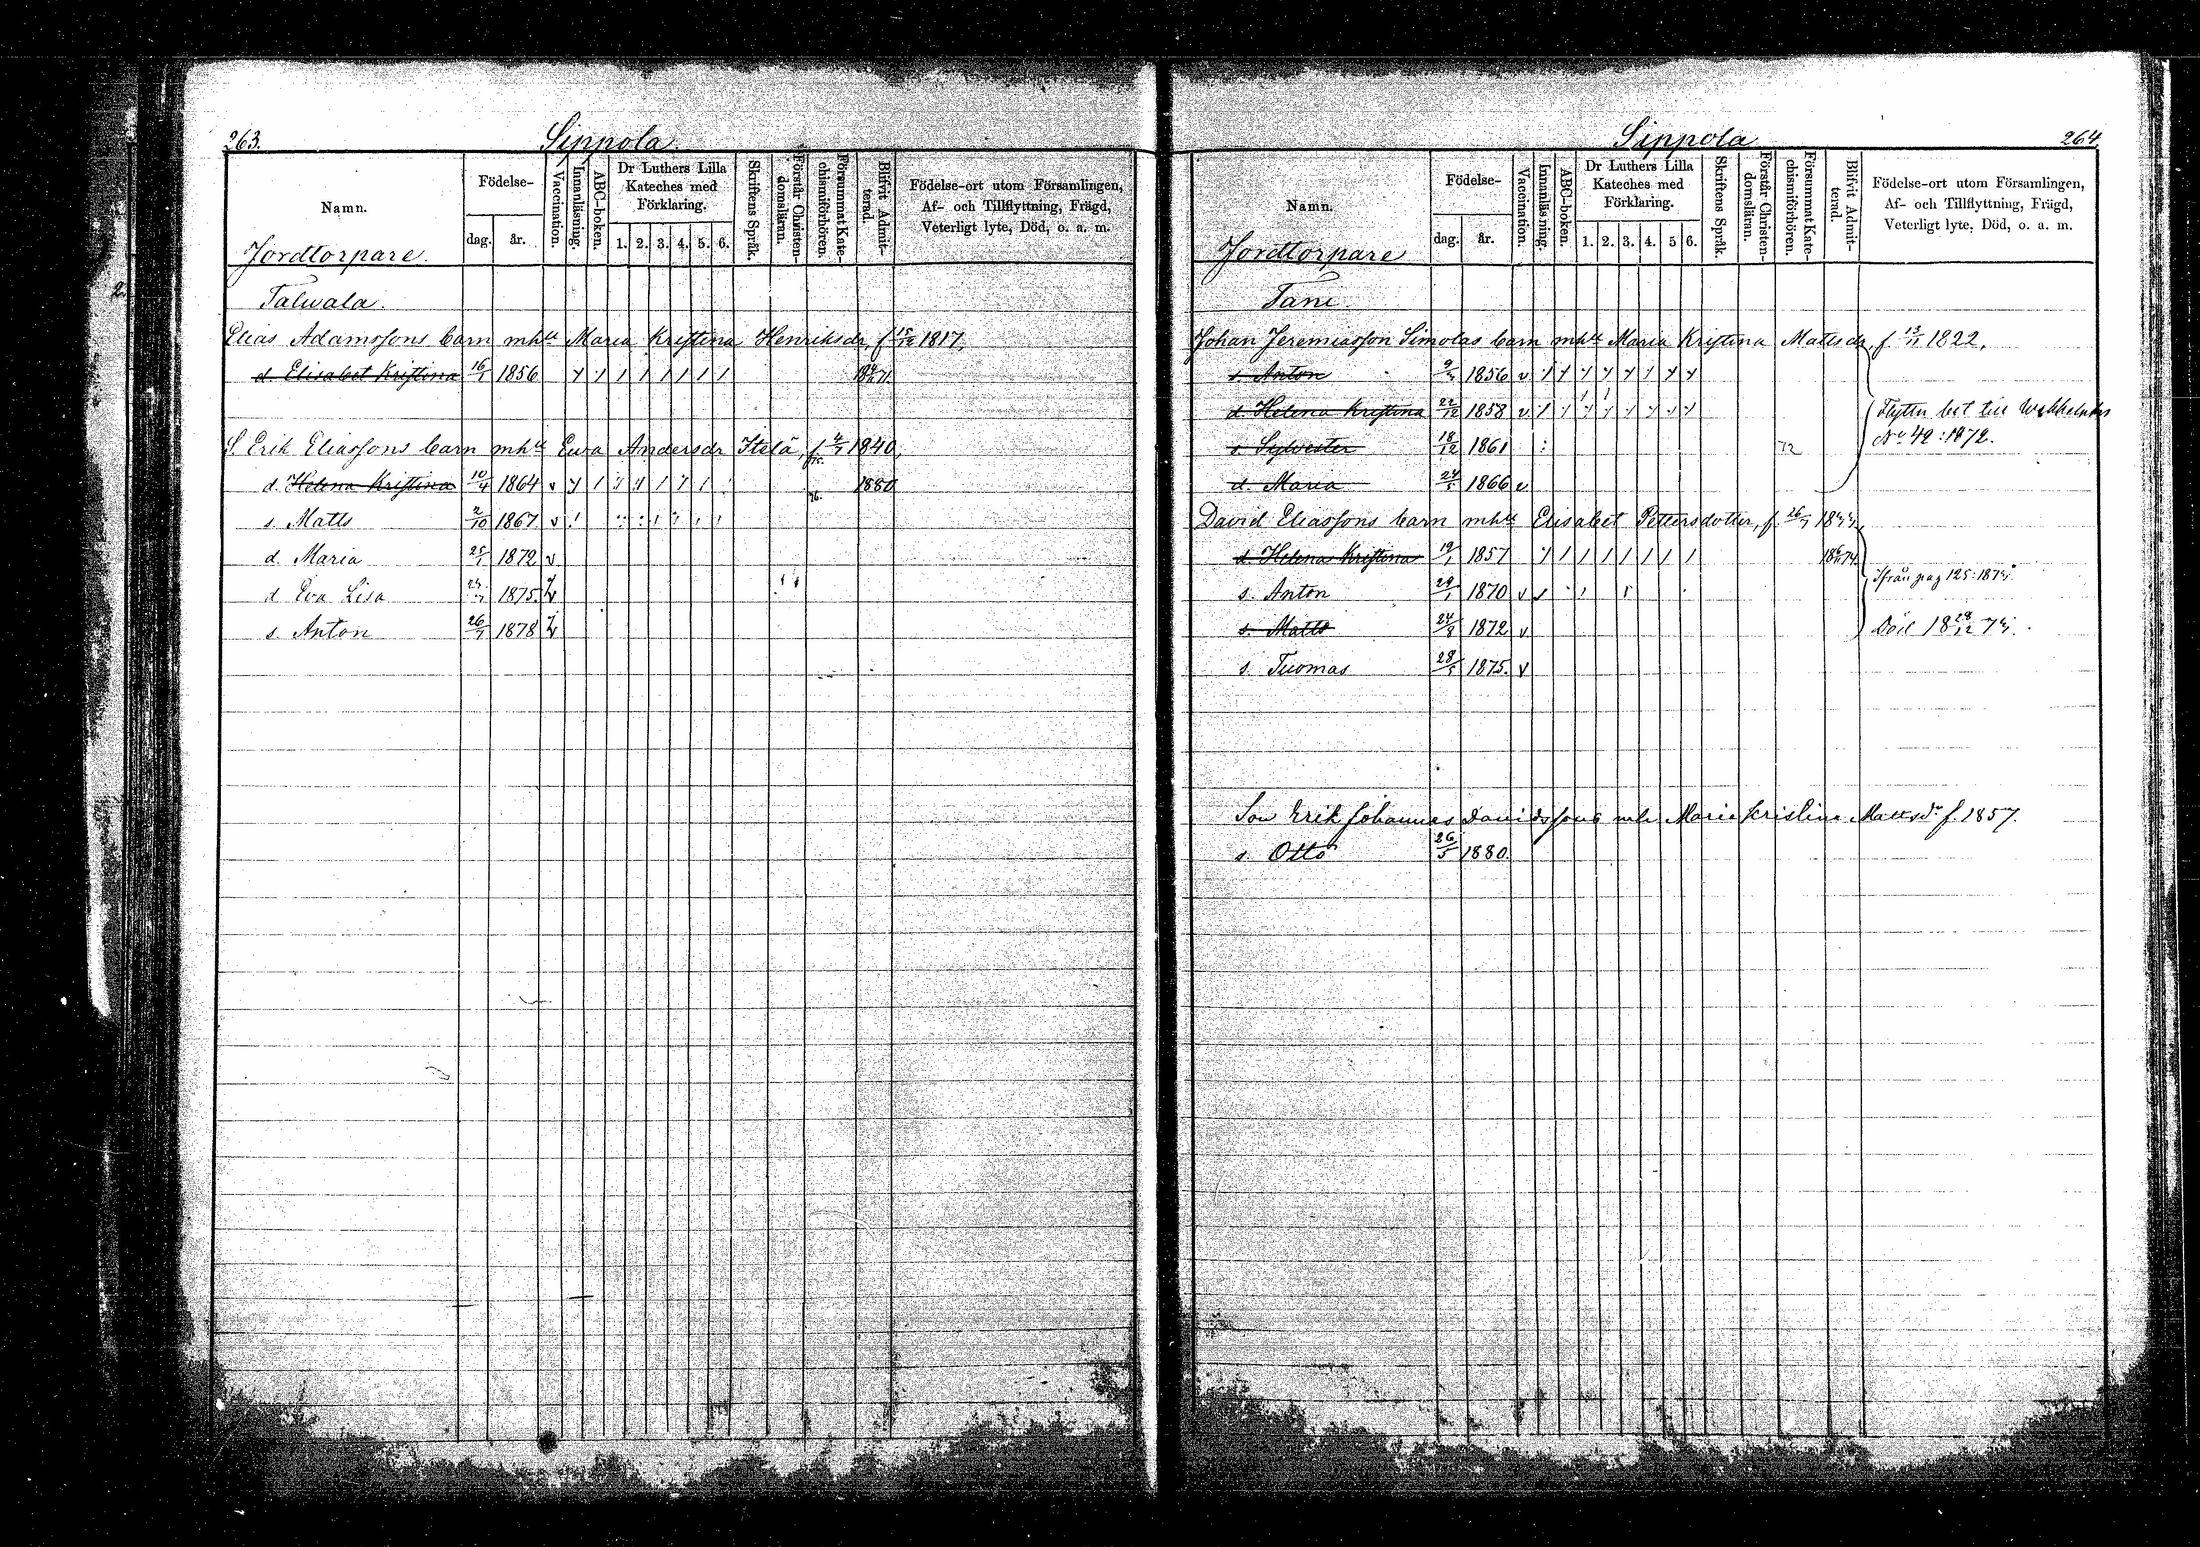 263.
Sippola.
Namn.
Födelse-
dag.
år.
Vaccination.
Innanläsning.
ABC-boken.
Dr Luthers Lilla Kateches med Förklaring.
1. 2. 3. 4. 5. 6.
Skriftens Språk.
Förstår Christendomsläran.
Försummat Katechismiförhören.
Blifvit Admitterad.
Födelse-ort utom Församlingen, Af- och Tillflyttning, Frägd, Veterligt lyte, Död, o. a. m.
Jordtorpare.
Talwala.
Elias Adamssons barn mhu Maria Kristina Henriksdr, f 15/12 1817,
d. Elisabet Kristina 16/1 1856
S. Erik Eliassons barn mhu Ewa Andersdr Itelä, f. 1840,
d. Helena Kristina 10/4 1864 v 1880
s. Matts 2/10 1867 v
d. Maria 25/1 1872 v
d Eva Lisa 1875. v
s. Anton 26/7 1878 v
264
Sippola
Namn.
Födelse-
dag.
år.
Vaccination.
Innanläsning.
ABC-boken.
Dr Luthers Lilla Kateches med Förklaring.
1. 2. 3. 4. 5 6.
Skriftens Språk.
Förstår Christendomsläran.
Försummat Katechismiförhören.
Blifvit Admitterad.
Födelse-ort utom Församlingen, Af- och Tillflyttning, Frägd, Veterligt lyte, Död, o. a. m.
Jordtorpare
Tani
Johan Jeremiasson Simolas barn mhu Maria Kristina Mattsdr, f. 13/11 1822,
s. Anton 1856 v
d. Helena Kristina 22/12 1858 v
Flytta bet till
s. Sylvester 18/12 1861 72
No 42:1872.
d. Maria 24/5 1866 v
David Eliassons barn mhu Elisabet Pettersdotter, f. 26/7
d. Helena Kristina 19/1 1857
s. Anton 29/1 1870 v
ifrån pag 125:
s. Matts 24/8 1872 v
Död 18 28/12
s. Tuomas 28/5 1875. v
Son Erik Johannes Davidssons mh Maria Kristina Mattsdr f. 1857.
s. Otto 26/5 1880.